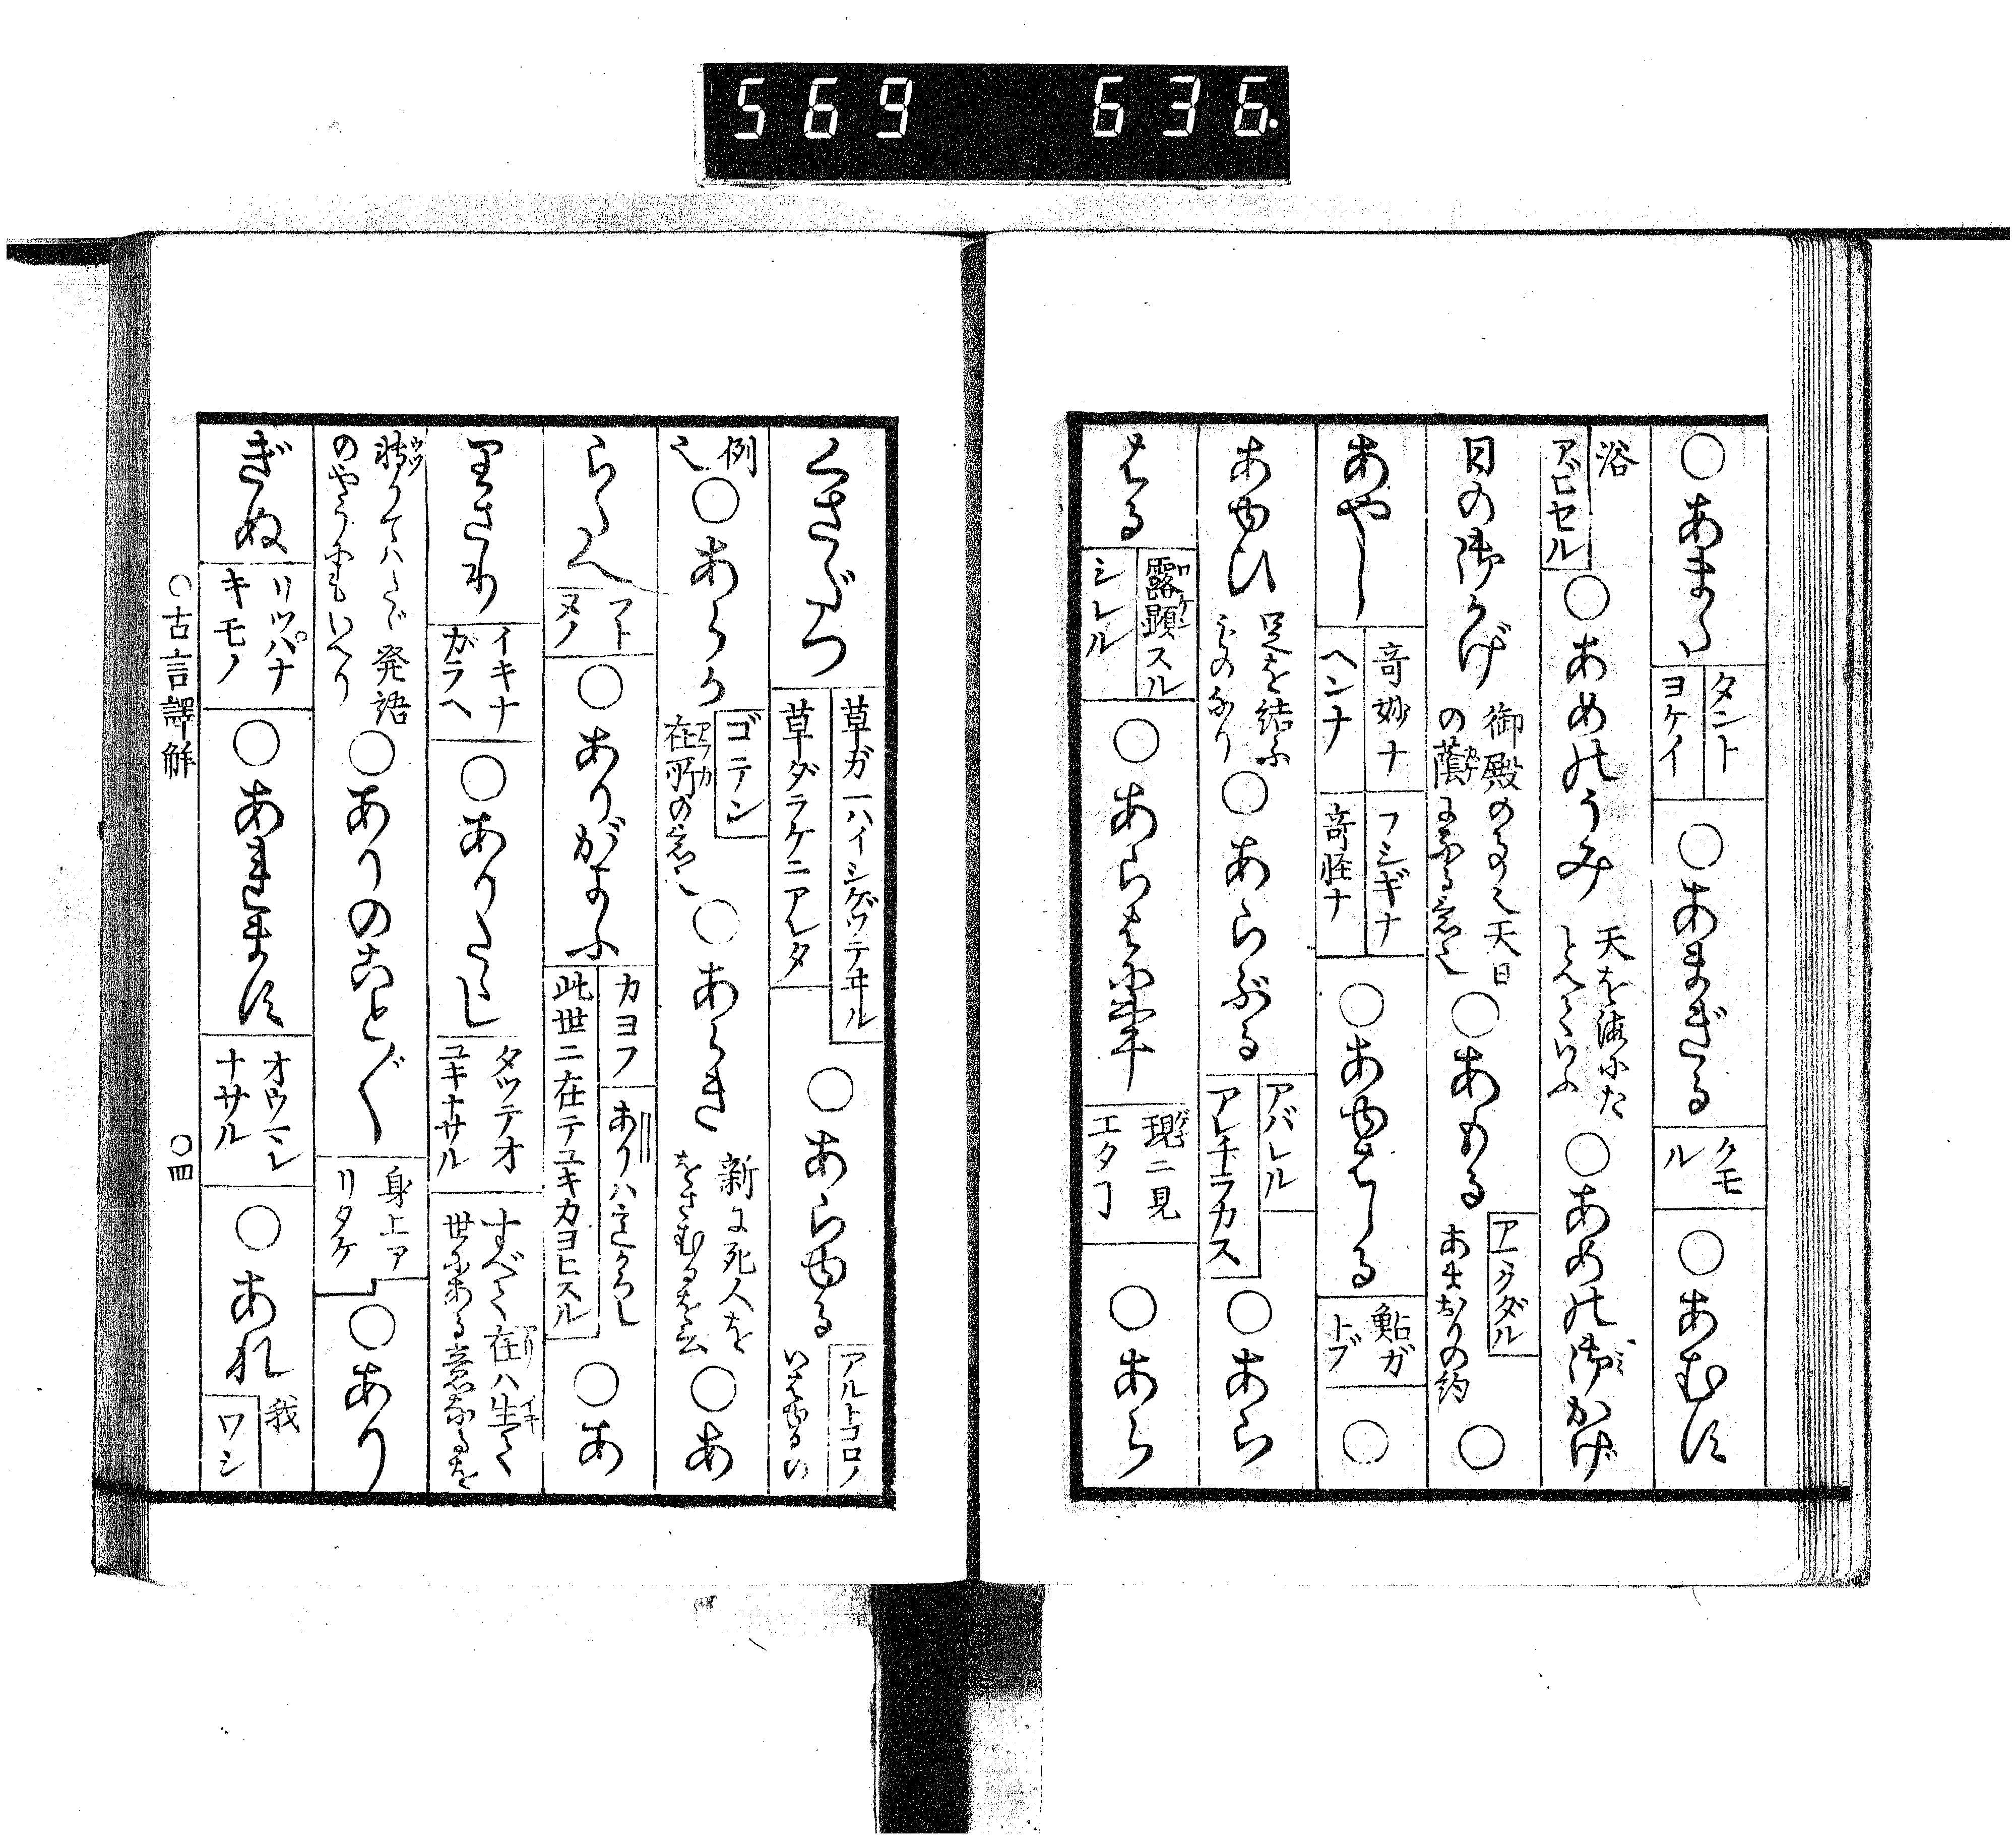 569 636.
○あまた タント ヨケイ ○あまぎる クモル ○あむす
浴 アビセル ○あめのうみ 天を海にたとへていふ ○あめの御かげ
日の御かげ 御殿のことにて天日の蔭になる意也 ○あもる アマクダル あまおりの約 ○
あやし 奇妙ナ ヘンナ フシギナ 奇怪ナ ○あゆはしる 鮎ガトブ ○
あゆひ 足を結ふものなり ○あらぶる アバレル アレチラカス ○あら
はる 露顕スル シレル ○あらはに 現ニ見エタコト ○あら
くさだつ 草ガ一ハイシゲツテヰル 草ダラケニアレタ ○あらゆる アルトコロノ いはゆるの
例也 ○あらか ゴテン 在所の意也 ○あらき 新に死人ををさむるを云 ○あ
らたへ フトヌノ ○ありがよふ カヨフ ありハ 此世ニ在テユキカヨヒスル ○あ
りさり イキナガラヘ ○ありたたし タツテオユキナサル すべて在ハ生て世にある意なるを
転りてハただ発語のやうにもいへり ○ありのことごと 身上アリタケ ○あり
ぎぬ リツパナキモノ ○あれます オウマレナサル ○あれ 我 ワシ
○古言譯解 ○四